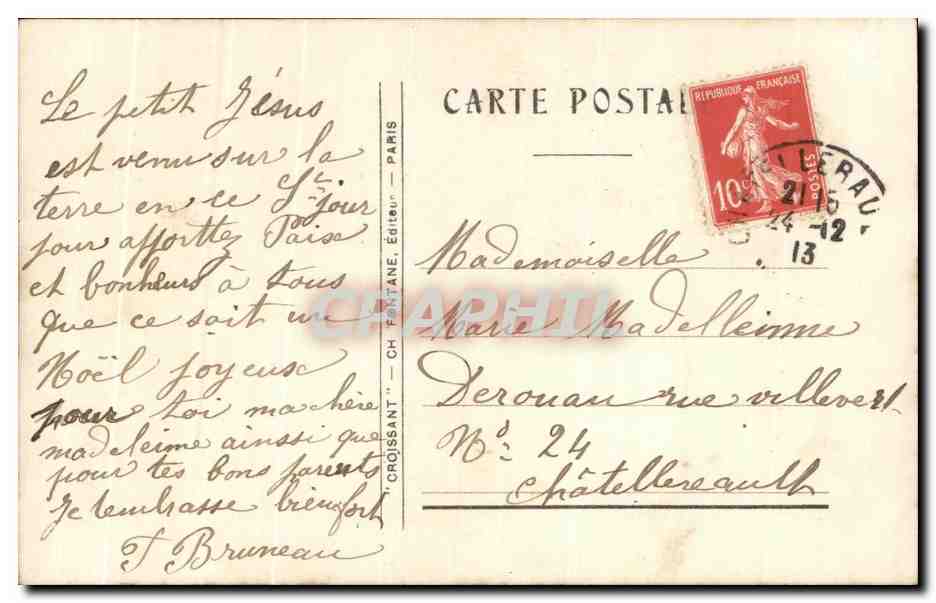 Le petit Jésus
est venu sur la
terre en ce St jour
pour apporttez Paix
et bonheurs à tous
que ce soit un
Noël joyeuse
pour toi ma chère
madeleime ainsi que
pour tes bons parents
Je tembrasse bien fort
J Bruneau
"CROISSANT" — CH FONTAINE, Éditeur — PARIS
CARTE POSTAL
REPUBLIQUE FRANÇAISE
10c
POSTES
LLERAU
21 15
24 -12
13
Mademoiselle
Marie Madelleinne
Derouau rue villevert
No: 24
Châtellereault
CPAPHIL